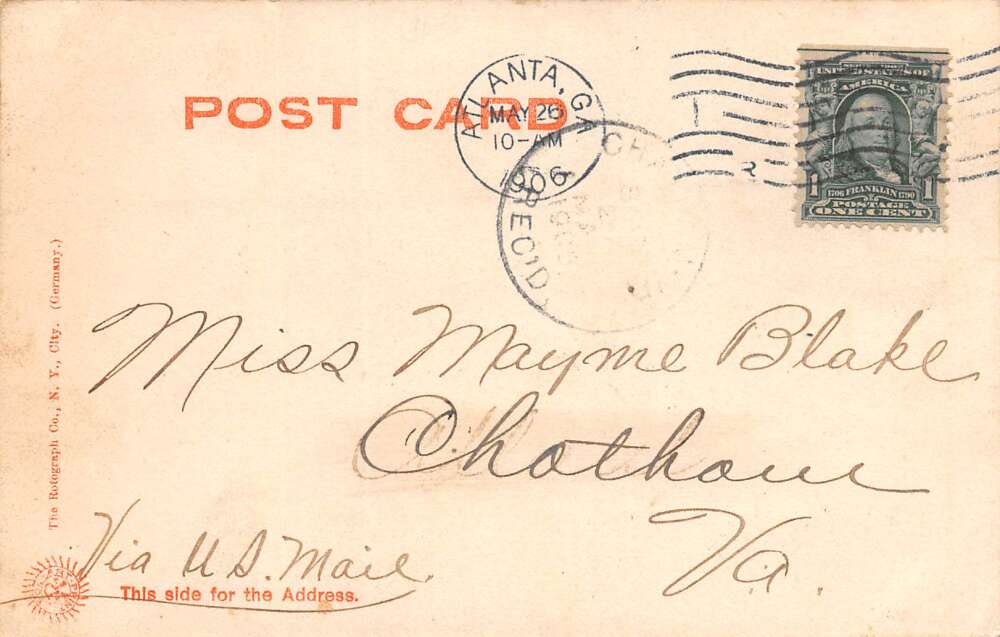 POST CARD
ATLANTA, GA
MAY 26
10-AM
1906
REC'D
UNITED STATES OF
AMERICA
1706 FRANKLIN 1790
1 1
POSTAGE
ONE CENT
Miss Mayme Blake
Chatham
Va.
Via U.S. Mail.
This side for the Address.
The Rotograph Co., N. Y., City. (Germany.)